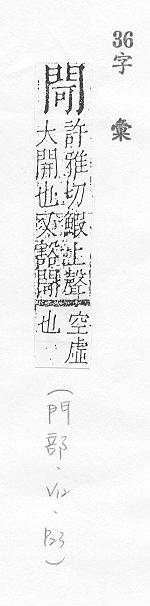 36
字彙
閜
許雅切鰕上聲空虛
大開也又谽閜也
(門部、V12、P23)